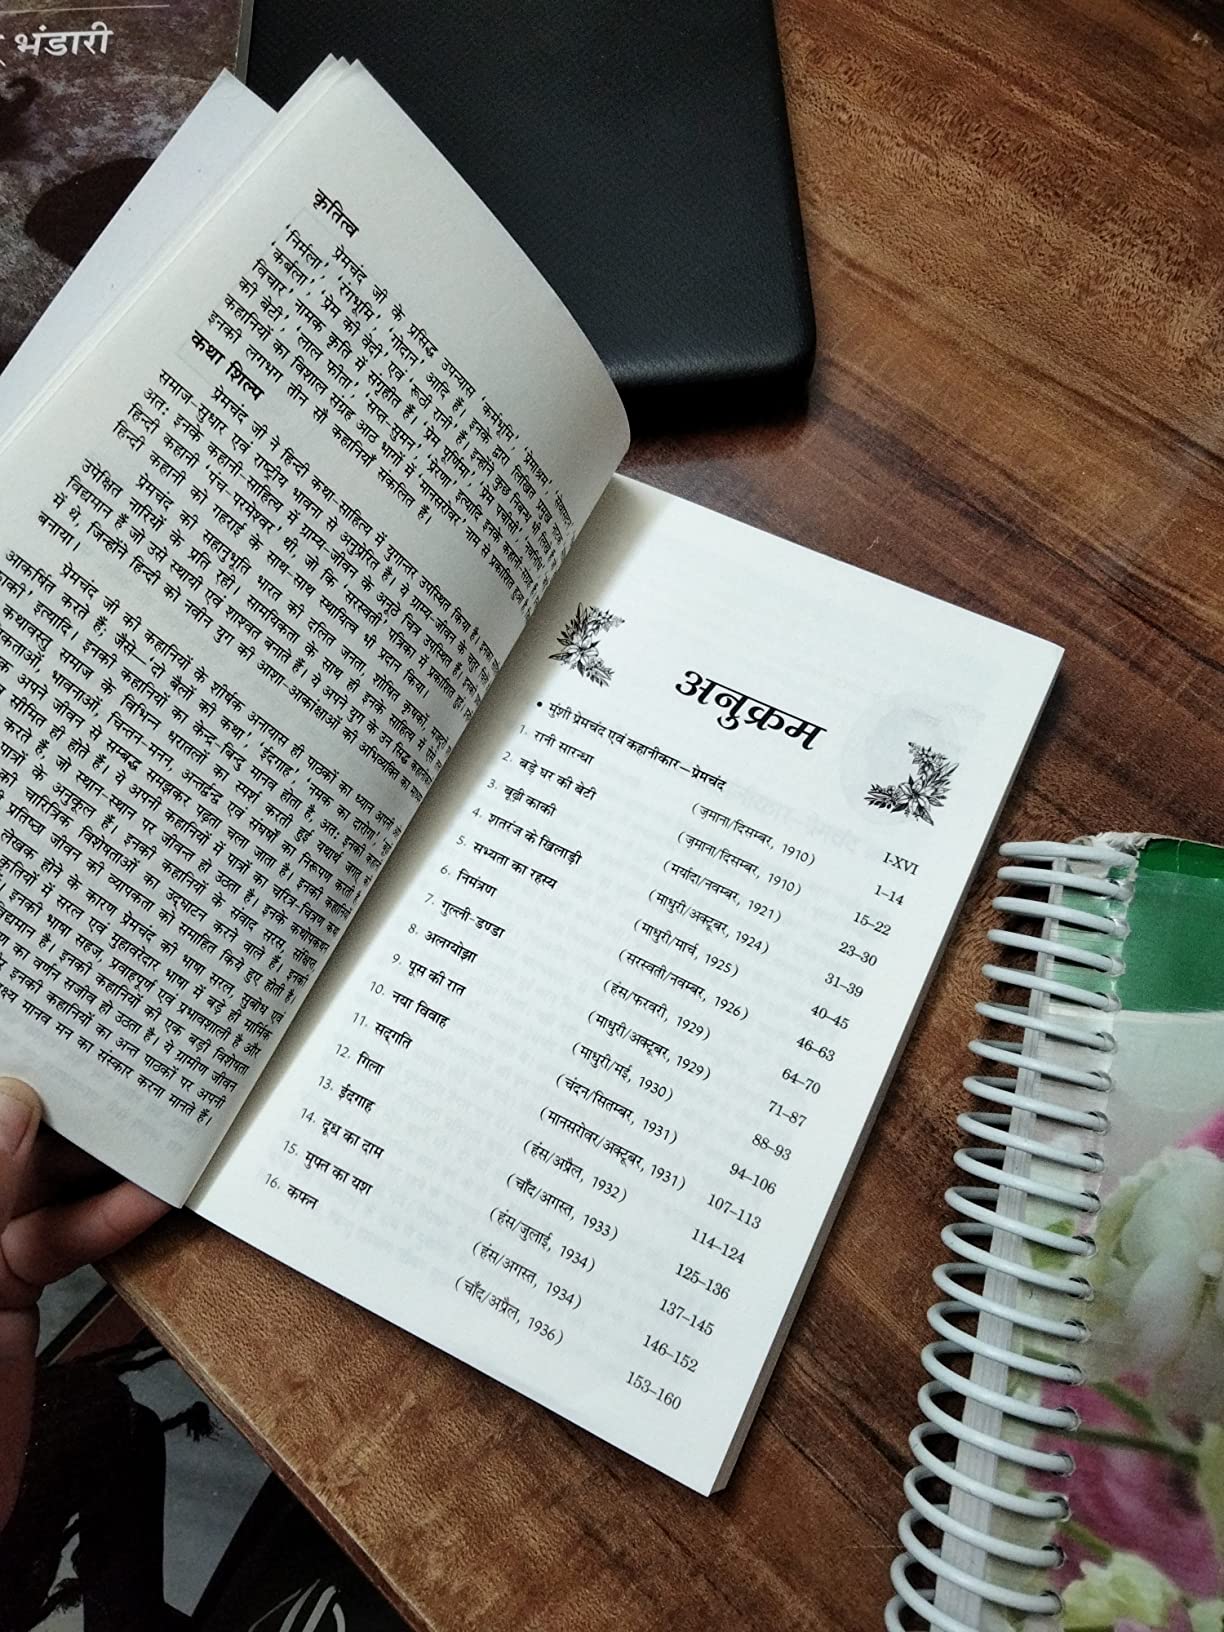 भंडारी
कृतित्व
प्रेमचंद जी के प्रसिद्ध उपन्यास 'कर्मभूमि', 'प्रेमाश्रम', 'सेवासदन',
'निर्मला', 'रंगभूमि', 'गोदान' आदि हैं। इनके द्वारा लिखित प्रमुख नाटक
'कर्बला', 'प्रेम की वेदी' एवं 'रूठी रानी' हैं। इन्होंने कुछ निबन्ध भी लिखे हैं
विचार' नामक कृति में संगृहीत हैं। 'प्रेम पूर्णिमा', 'प्रेम पचीसी', 'नवनिधि',
की बेटी', 'लाल फीता', 'सप्त-सुमन', 'प्रेरणा' इत्यादि इनके कहानी-संग्रह हैं।
कहानियों का विशाल संग्रह आठ भागों में 'मानसरोवर' नाम से प्रकाशित हुआ है
इनकी लगभग तीन सौ कहानियाँ संकलित हैं।
कथा शिल्प
प्रेमचंद जी ने हिन्दी कथा-साहित्य में युगान्तर उपस्थित किया है। इनका
समाज-सुधार एवं राष्ट्रीय भावना से अनुप्रेरित है। ये ग्राम्य-जीवन के चतुर चितेरे
अतः इनके कहानी-साहित्य में ग्राम्य-जीवन के अनूठे चित्र उपस्थित हैं। इनकी
हिन्दी कहानी 'पंच-परमेश्वर' थी, जो कि 'सरस्वती' पत्रिका में प्रकाशित हुई।
हिन्दी कहानी को गहराई के साथ-साथ स्थायित्व भी प्रदान किया।
प्रेमचंद की सहानुभूति भारत की दलित जनता शोषित कृषकों, मजदूरों
उपेक्षित नारियों के प्रति रही। सामयिकता के साथ ही इनके साहित्य में ऐसे
विद्यमान हैं जो उसे स्थायी एवं शाश्वत बनाते हैं। ये अपने युग के उन सिद्ध कलाकारों
में थे, जिन्होंने हिन्दी को नवीन युग की आशा-आकांक्षाओं की अभिव्यक्ति का माध्यम
बनाया।
प्रेमचंद जी की कहानियों के शीर्षक अनायास ही पाठकों का ध्यान अपनी ओर
आकर्षित करते हैं; जैसे—'दो बैलों की कथा', 'ईदगाह', 'नमक का दारोगा',
काकी' इत्यादि। इनकी कहानियों का केन्द्र-बिन्दु मानव होता है, अतः इनकी कहानी
कथावस्तु समाज के विभिन्न धरातलों का स्पर्श करती हुई यथार्थ जगत् की
भावनाओं, चिन्तन-मनन, अन्तर्द्वन्द्व एवं संघर्षों का निरूपण करती है
अपने जीवन से सम्बद्ध समझकर पढ़ता चला जाता है। इनकी कहानियाँ
सीमित ही होते हैं। ये अपनी कहानियों में पात्रों का चरित्र-चित्रण
करते हैं, जो स्थान-स्थान पर जीवन्त हो उठता है। इनके कथोपकथन
पात्रों के अनुकूल हैं। इनकी कहानियों के संवाद सरस, संक्षिप्त,
की चारित्रिक विशेषताओं का उद्घाटन करने वाले हैं। इनकी
प्रतिष्ठा जीवन की व्यापकता को समाहित किये हुए होती है।
लेखक होने के कारण प्रेमचंद की भाषा सरल, सुबोध एवं
कृतियों में सरल एवं मुहावरेदार भाषा में बड़े ही मार्मिक
इनकी भाषा सहज, प्रवाहपूर्ण एवं प्रभावशाली है और
विद्यमान है। इनकी कहानियों की एक बड़ी विशेषता
का वर्णन सजीव हो उठता है। ये ग्रामीण जीवन
इनकी कहानियों का अन्त पाठकों पर अपनी
मानव मन का संस्कार करना मानते हैं।
अनुक्रम
• मुंशी प्रेमचंद एवं कहानीकार—प्रेमचंद I-XVI
1. रानी सारन्धा (ज़माना/दिसम्बर, 1910) 1–14
2. बड़े घर की बेटी (ज़माना/दिसम्बर, 1910) 15–22
3. बूढ़ी काकी (मर्यादा/नवम्बर, 1921) 23–30
4. शतरंज के खिलाड़ी (माधुरी/अक्टूबर, 1924) 31–39
5. सभ्यता का रहस्य (माधुरी/मार्च, 1925) 40–45
6. निमंत्रण (सरस्वती/नवम्बर, 1926) 46–63
7. गुल्ली-डण्डा (हंस/फरवरी, 1929) 64–70
8. अलग्योझा (माधुरी/अक्टूबर, 1929) 71–87
9. पूस की रात (माधुरी/मई, 1930) 88–93
10. नया विवाह (चंदन/सितम्बर, 1931) 94–106
11. सद्‌गति (मानसरोवर/अक्टूबर, 1931) 107–113
12. गिला (हंस/अप्रैल, 1932) 114–124
13. ईदगाह (चाँद/अगस्त, 1933) 125–136
14. दूध का दाम (हंस/जुलाई, 1934) 137–145
15. मुफ्त का यश (हंस/अगस्त, 1934) 146–152
16. कफन (चाँद/अप्रैल, 1936) 153–160